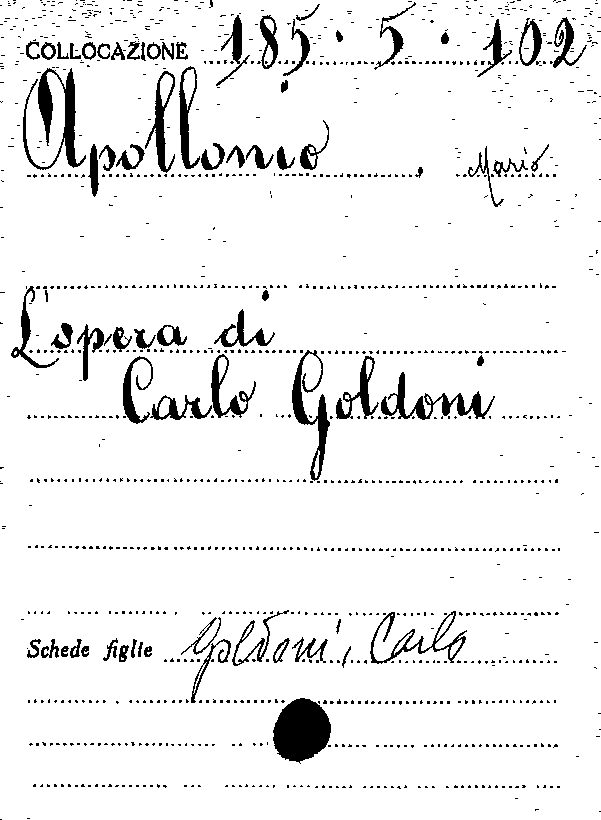 COLLOCAZIONE 185.5.102
Apollonio, Mario
L'opera di
Carlo Goldoni
Schede figlie Goldoni, Carlo